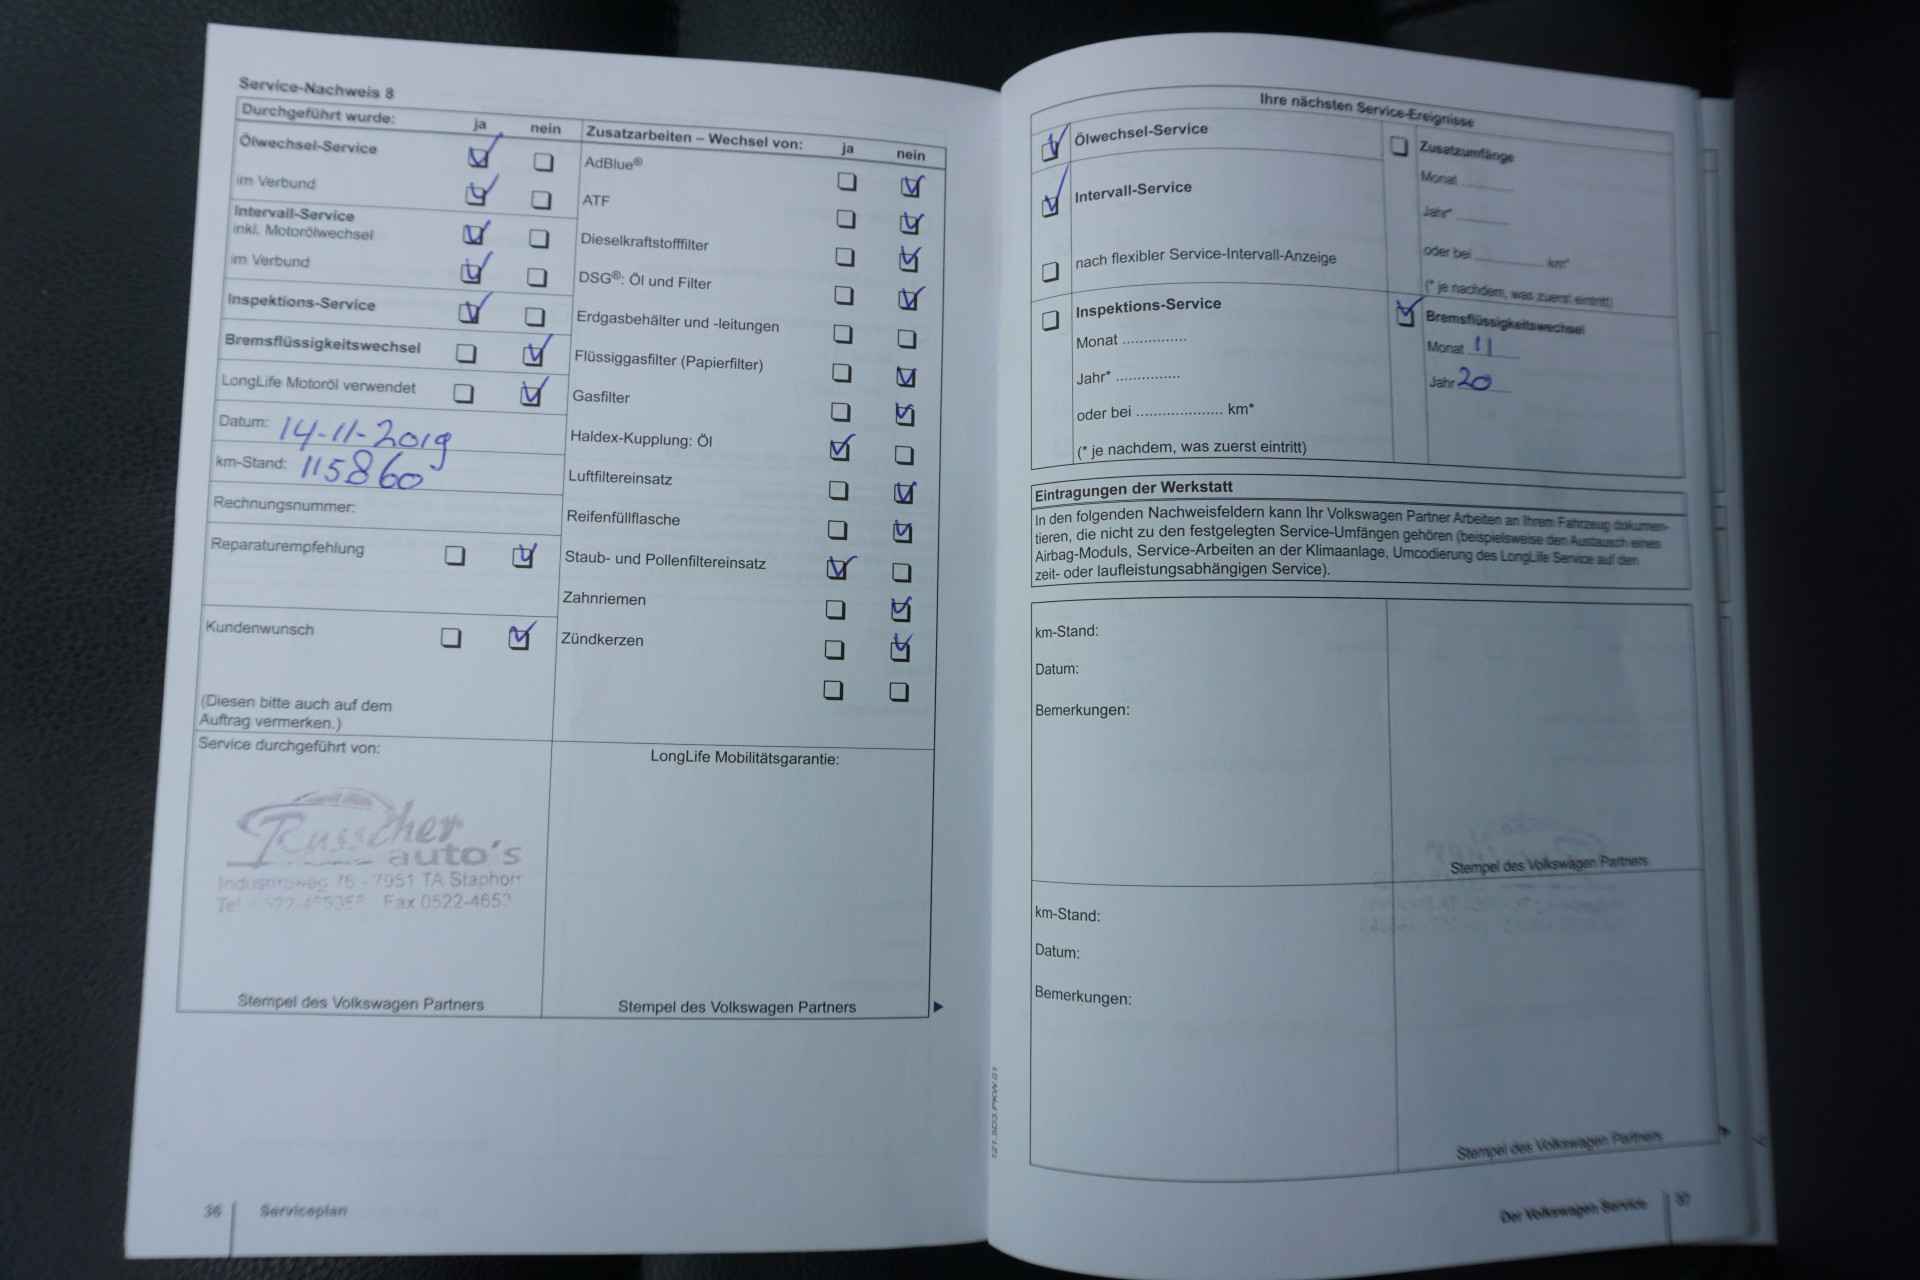 Service-Nachweis 8
Durchgeführt wurde: ja nein
Ölwechsel-Service
im Verbund
Intervall-Service
inkl. Motorölwechsel
im Verbund
Inspektions-Service
Bremsflüssigkeitswechsel
LongLife Motoröl verwendet
Datum: 14-11-2019
km-Stand: 115860
Rechnungsnummer:
Reparaturempfehlung
Kundenwunsch
(Diesen bitte auch auf dem
Auftrag vermerken.)
Service durchgeführt von:
Russcher
auto's
76 - 7951 TA Staphorst
Fax 0522-4653
Stempel des Volkswagen Partners
Zusatzarbeiten – Wechsel von: ja nein
AdBlue®
ATF
Dieselkraftstofffilter
DSG®: Öl und Filter
Erdgasbehälter und -leitungen
Flüssiggasfilter (Papierfilter)
Gasfilter
Haldex-Kupplung: Öl
Luftfiltereinsatz
Reifenfüllflasche
Staub- und Pollenfiltereinsatz
Zahnriemen
Zündkerzen
LongLife Mobilitätsgarantie:
Stempel des Volkswagen Partners
36 Serviceplan
Ihre nächsten Service-Ereignisse
Ölwechsel-Service
Intervall-Service
nach flexibler Service-Intervall-Anzeige
Inspektions-Service
Monat ...............
Jahr* ...............
oder bei .................... km*
(* je nachdem, was zuerst eintritt)
Zusatzumfänge
Monat ............
Jahr* ............
oder bei ................ km*
(* je nachdem, was zuerst eintritt)
Bremsflüssigkeitswechsel
Monat 11
Jahr 20
Eintragungen der Werkstatt
In den folgenden Nachweisfeldern kann Ihr Volkswagen Partner Arbeiten an Ihrem Fahrzeug dokumen-
tieren, die nicht zu den festgelegten Service-Umfängen gehören (beispielsweise den Austausch eines
Airbag-Moduls, Service-Arbeiten an der Klimaanlage, Umcodierung des LongLife Service auf den
zeit- oder laufleistungsabhängigen Service).
km-Stand:
Datum:
Bemerkungen:
Stempel des Volkswagen Partners
km-Stand:
Datum:
Bemerkungen:
Stempel des Volkswagen Partners
Der Volkswagen Service 37